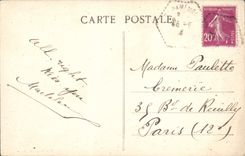 CARTE POSTALE
20
All right
Kiss you
Madame Paulette
Cremerie
35 Bd de Reuilly
Paris (12)